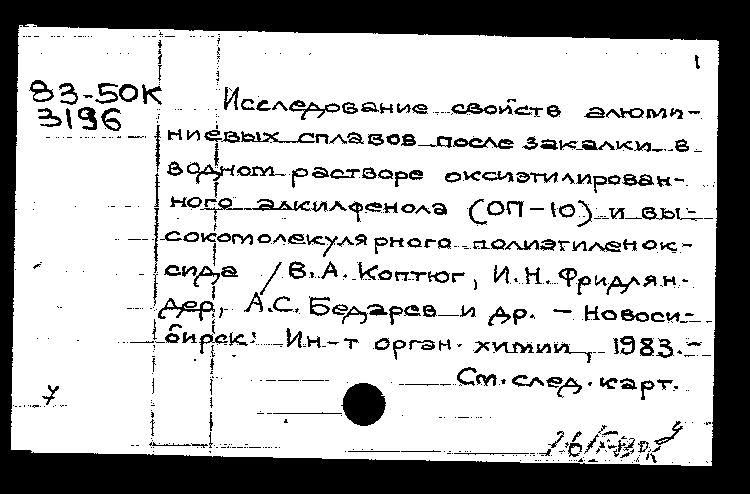 1
83-50К
3196
Исследование свойств алюми-
ниевых сплавов после закалки в
водном растворе оксиэтилирован-
ного алкилфенола (ОП-10) и вы-
сокомолекулярного полиэтиленок-
сида / В.А. Коптюг, И.Н. Фридлян-
дер, А.С. Бедарев и др. - Новоси-
бирск: Ин-т орган. химии, 1983.-
См. след. карт.